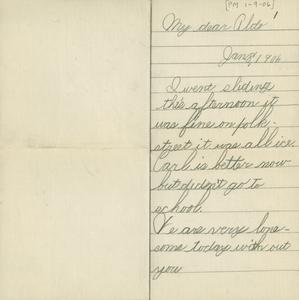 [PM 1-9-06]
My dear Aldo
Jan 7 1906
I went sliding
this afternoon it
was fine on polk-
street it was all ice
Carl is better now
but didn't go to
school.
We are very lone-
some today with out
you